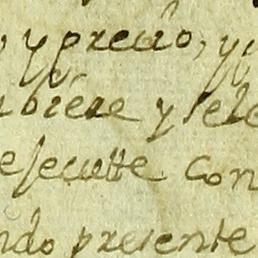 y precio, y
ubiere y sele
esecutte con
ndo presente